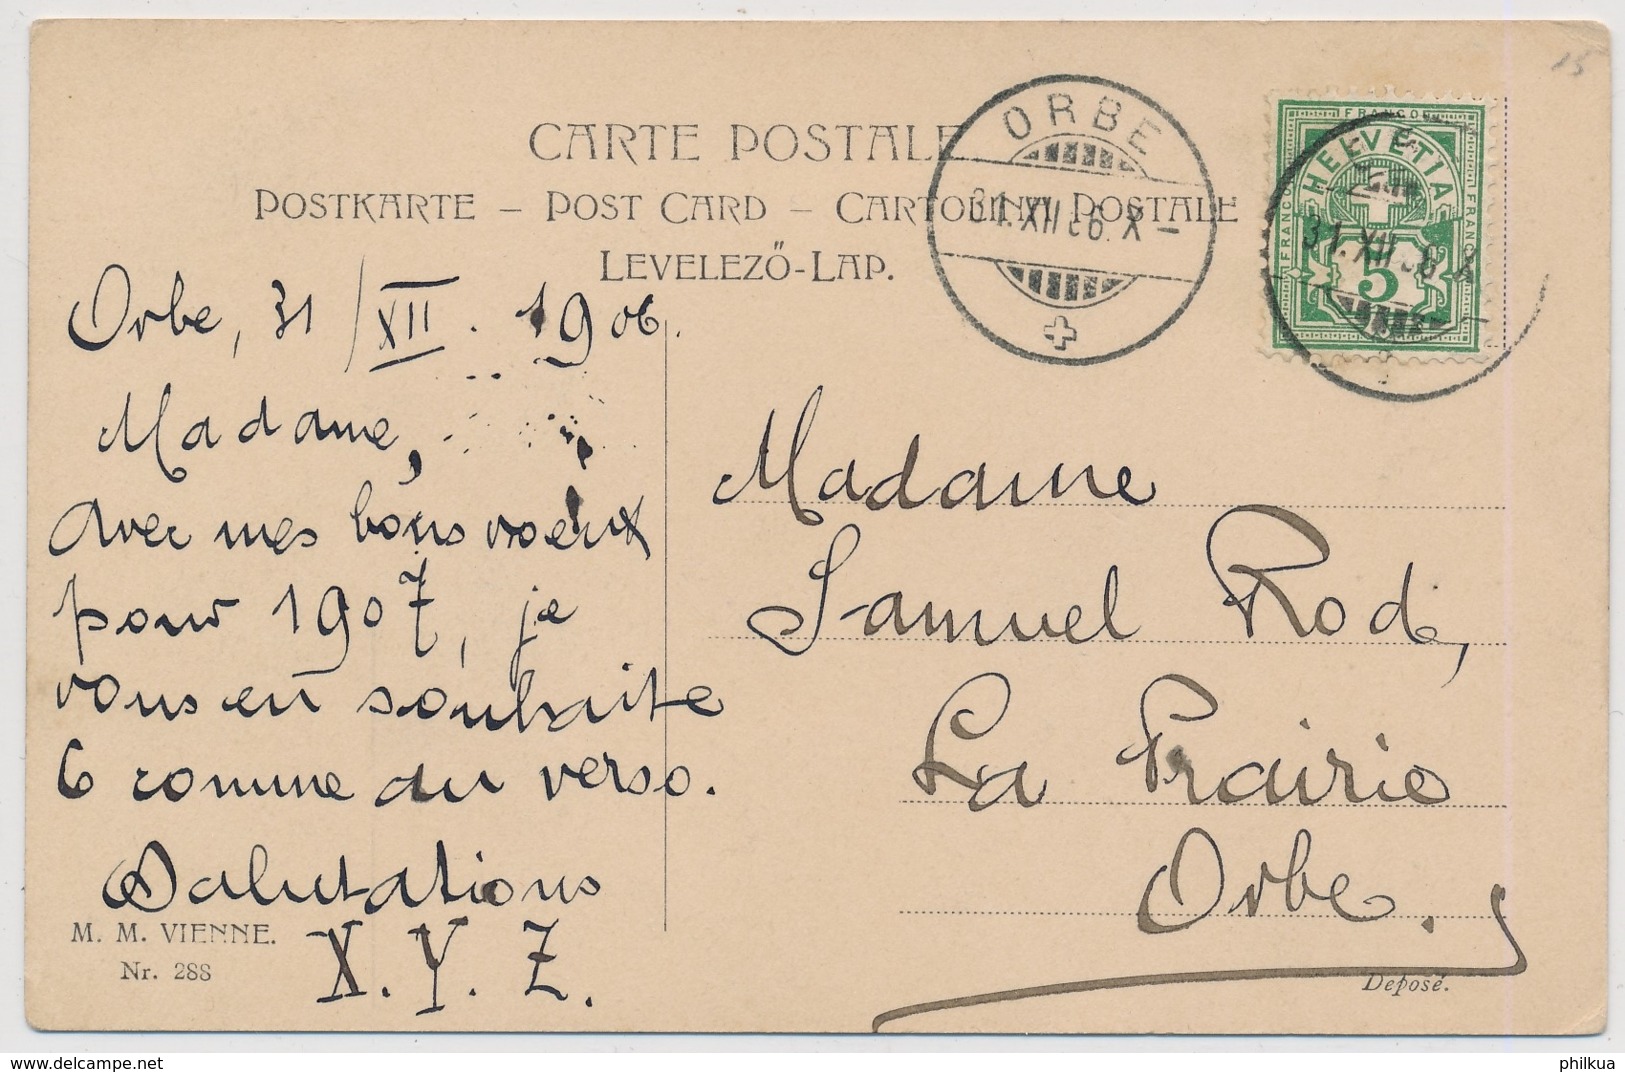 15
CARTE POSTALE
POSTKARTE – POST CARD – CARTOLINA POSTALE
LEVELEZŐ-LAP.
ORBE
31.XII 06.X –
FRANCO
HELVETIA
FRANCO
FRANCO
5
31.XII
Orbe, 31/XII. 1906.
Madame,
Avec mes bons voeux
pour 1907, je
vous en souhaite
6 comme au verso.
Salutations
X. Y. Z.
Madame
Samuel Rod,
La Prairie
Orbe.
M. M. VIENNE.
Nr. 288
Deposé.
www.delcampe.net
philkua